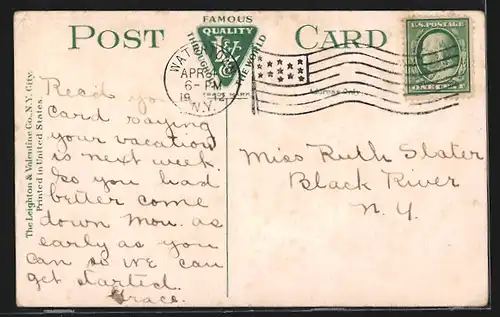 FAMOUS
POST QUALITY CARD
THROUGHOUT THE WORLD
U.S. POSTAGE
APR
6-PM
1912
N.Y.
Address Only
ONE CENT
The Leighton & Valentine Co., N.Y. City.
Printed in United States.
Read your
card saying
your vacation
is next week.
So you had
better come
down Mon. as
early as you
can so we can
get started.
Grace.
Miss Ruth Slater
Black River
N.Y.